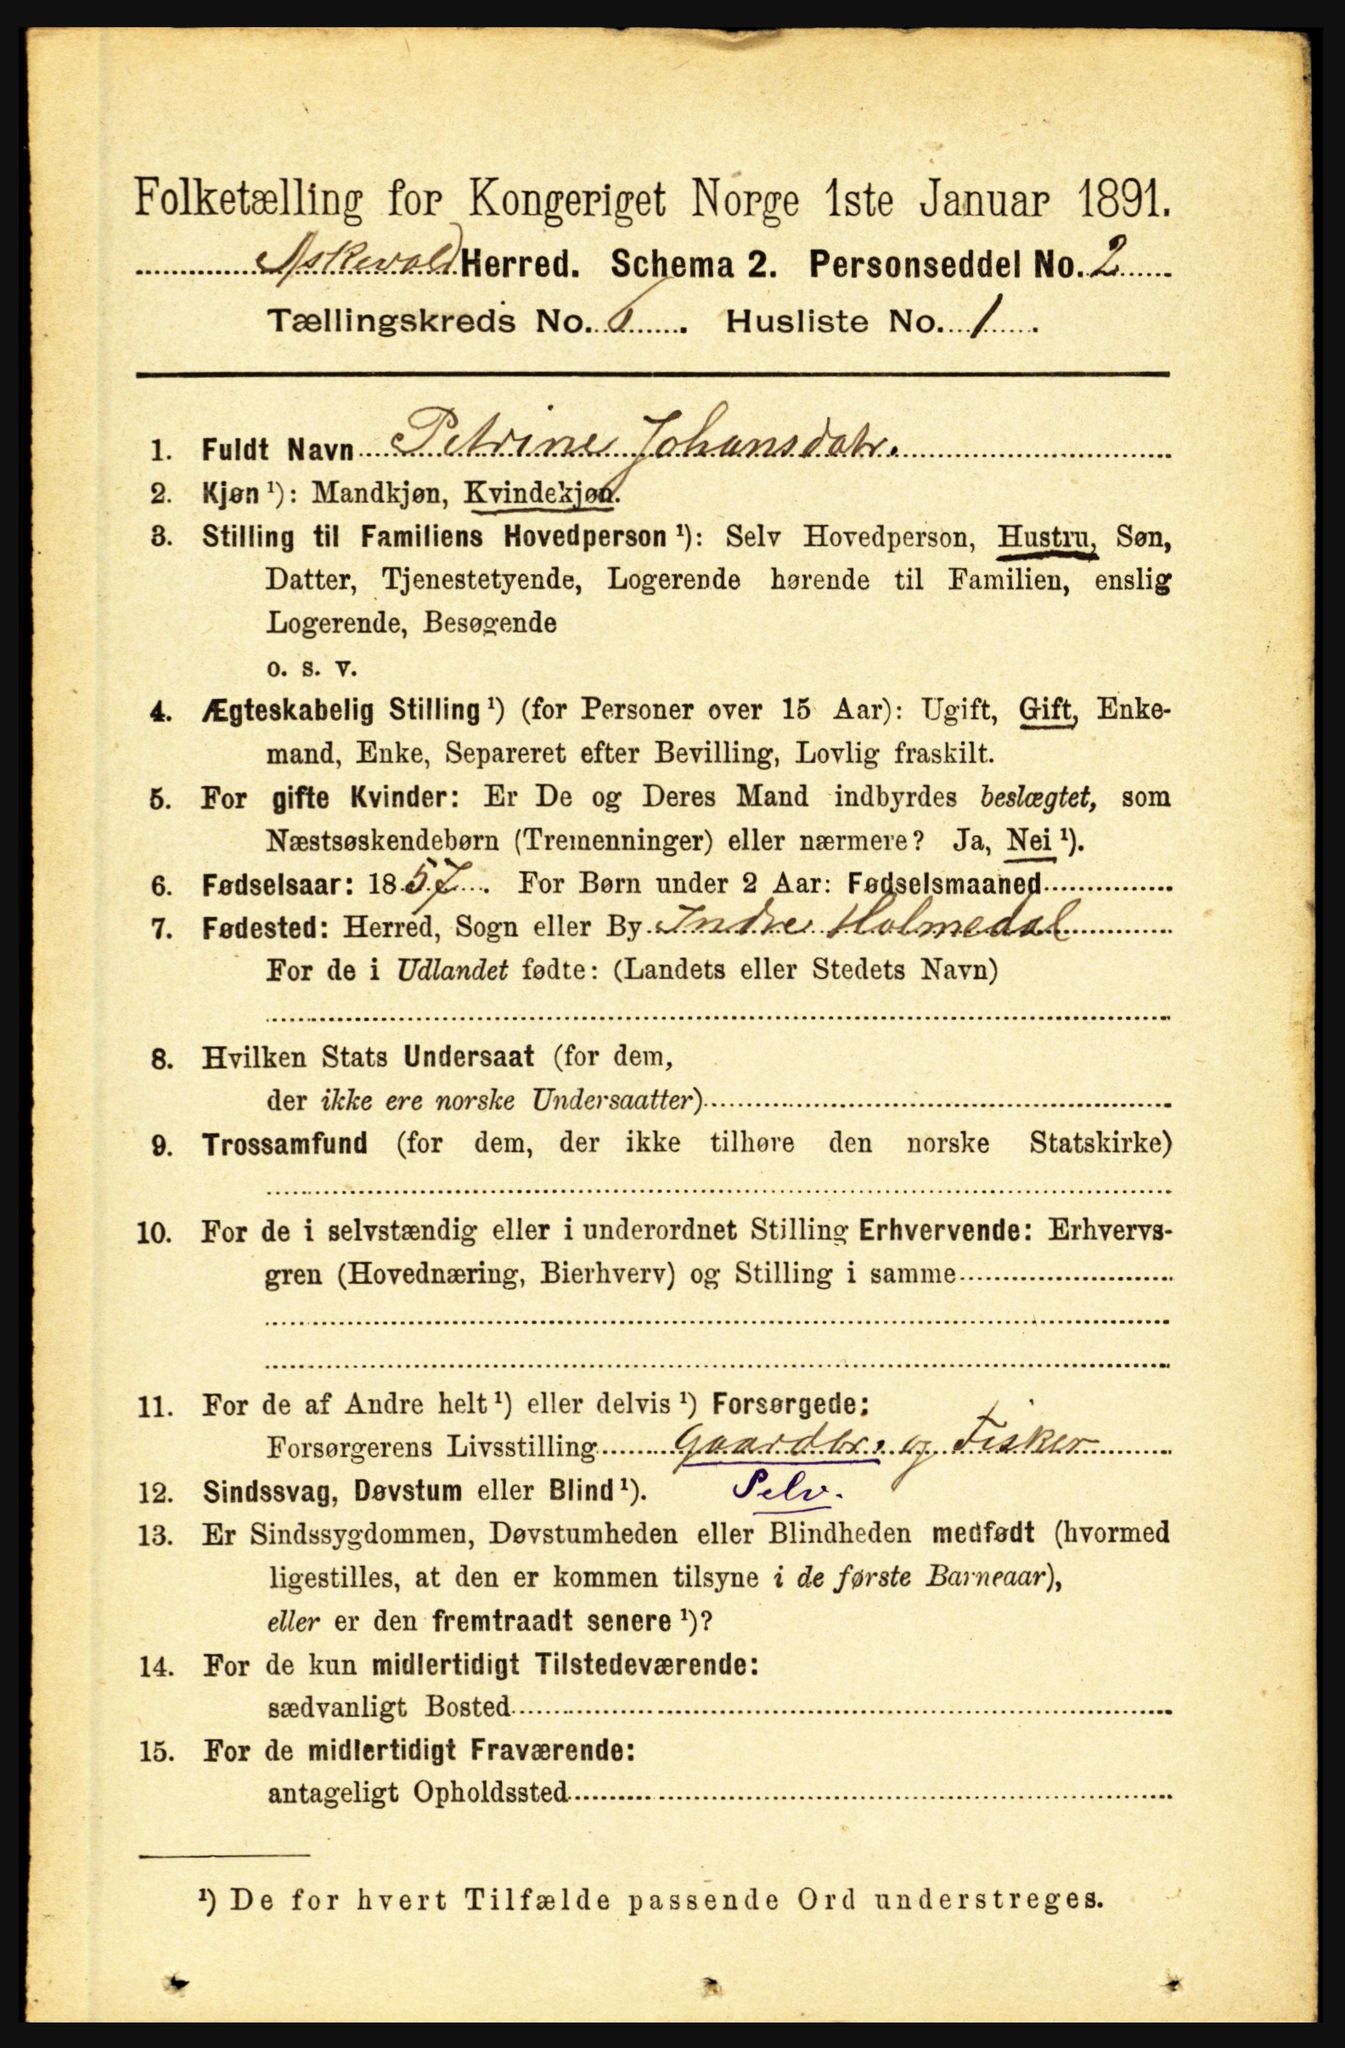 Folketælling for Kongeriget Norge 1ste Januar 1891.
Askevold Herred. Schema 2. Personseddel No. 2
Tællingskreds No. 1. Husliste No. 1.
1. Fuldt Navn Petrine Johansdatr.
2. Kjøn ¹): Mandkjøn, Kvindekjøn.
3. Stilling til Familiens Hovedperson ¹): Selv Hovedperson, Hustru, Søn,
Datter, Tjenestetyende, Logerende hørende til Familien, enslig
Logerende, Besøgende
o. s. v.
4. Ægteskabelig Stilling ¹) (for Personer over 15 Aar): Ugift, Gift, Enke-
mand, Enke, Separeret efter Bevilling, Lovlig fraskilt.
5. For gifte Kvinder: Er De og Deres Mand indbyrdes beslægtet, som
Næstsøskendebørn (Tremenninger) eller nærmere? Ja, Nei ¹).
6. Fødselsaar: 1857. For Børn under 2 Aar: Fødselsmaaned
7. Fødested: Herred, Sogn eller By Indre Holmedal
For de i Udlandet fødte: (Landets eller Stedets Navn)
8. Hvilken Stats Undersaat (for dem,
der ikke ere norske Undersaatter)
9. Trossamfund (for dem, der ikke tilhøre den norske Statskirke)
10. For de i selvstændig eller i underordnet Stilling Erhvervende: Erhvervs-
gren (Hovednæring, Bierhverv) og Stilling i samme
11. For de af Andre helt ¹) eller delvis ¹) Forsørgede:
Forsørgerens Livsstilling Gaardbr. og Fisker
12. Sindssvag, Døvstum eller Blind ¹). Selv.
13. Er Sindssygdommen, Døvstumheden eller Blindheden medfødt (hvormed
ligestilles, at den er kommen tilsyne i de første Barneaar),
eller er den fremtraadt senere ¹)?
14. For de kun midlertidigt Tilstedeværende:
sædvanligt Bosted
15. For de midlertidigt Fraværende:
antageligt Opholdssted
¹) De for hvert Tilfælde passende Ord understreges.